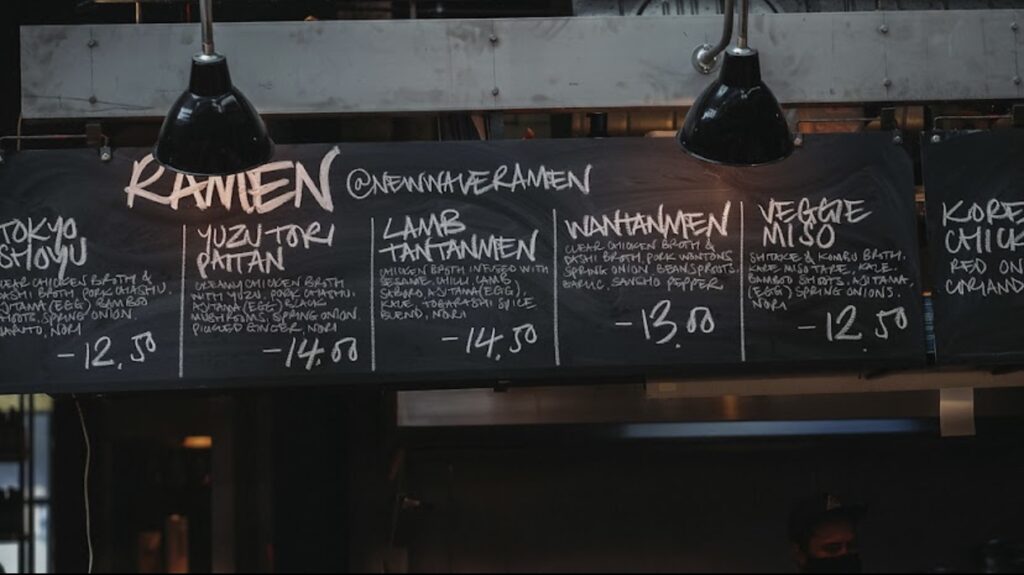 RAMEN @NEWWAVERAMEN
TOKYO
SHOYU
CLEAR CHICKEN BROTH &
DASHI BROTH, PORK CHASHU,
AJITAMA (EGG) BAMBOO
SHOOTS, SPRING ONION,
NARUTO, NORI
-12.50
YUZU TORI
PAITAN
CREAMY CHICKEN BROTH
WITH YUZU, PORK CHASHU,
AJITAMA (EGG), BLACK
MUSHROOMS, SPRING ONION
PICKLED GINGER, NORI
-14.00
LAMB
TANTANMEN
CHICKEN BROTH INFUSED WITH
SESAME, CHILLI, LAMB
SOBORO, AJITAMA (EGG)
KALE, TOGARASHI SPICE
BLEND, NORI
-14.50
WANTANMEN
CLEAR CHICKEN BROTH &
DASHI BROTH PORK WONTONS
SPRING ONION, BEANSPROUTS,
GARLIC, SANSHO PEPPER
-13.00
VEGGIE
MISO
SHITAKE & KOMBU BROTH,
KARE MISO TARE, KALE,
BAMBOO SHOOTS, AJITAMA,
(EGG) SPRING ONIONS,
NORI
-12.50
KORE
CHICK
RED ON
CORIAND